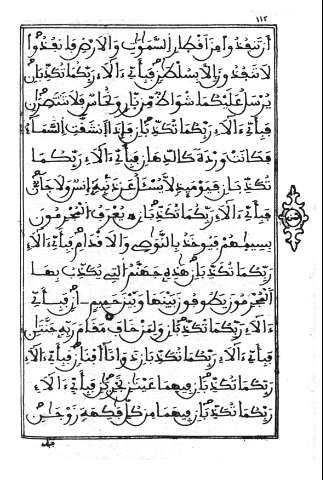 ١١٢
أن تنفذوا من أقطار السموت والارض فانفذوا
لا تنفذون إلا بسلطن فبأي ءالاء ربكما تكذبان
يرسل عليكما شواظ من نار ونحاس فلا تنتصرن
فبأي ءالاء ربكما تكذبان فإذا انشقت السماء
فكانت وردة كالدهان فبأي ءالاء ربكما
تكذبان فيومئذ لا يسئل عن ذنبه إنس ولا جان
فبأي ءالاء ربكما تكذبان يعرف المجرمون
بسيمهم فيوخذ بالنوصي والاقدام فبأي ءالاء
ربكما تكذبان هذه جهنم التي يكذب بها
المجرمون يطوفون بينها وبين حميم ان فبأي
ءالاء ربكما تكذبان ولمن خاف مقام ربه جنتن
فبأي ءالاء ربكما تكذبان ذواتا أفنان فبأي ءالاء
ربكما تكذبان فيهما عينن تجرين فبأي ءالاء
ربكما تكذبان فيهما من كل فكهة زوجان